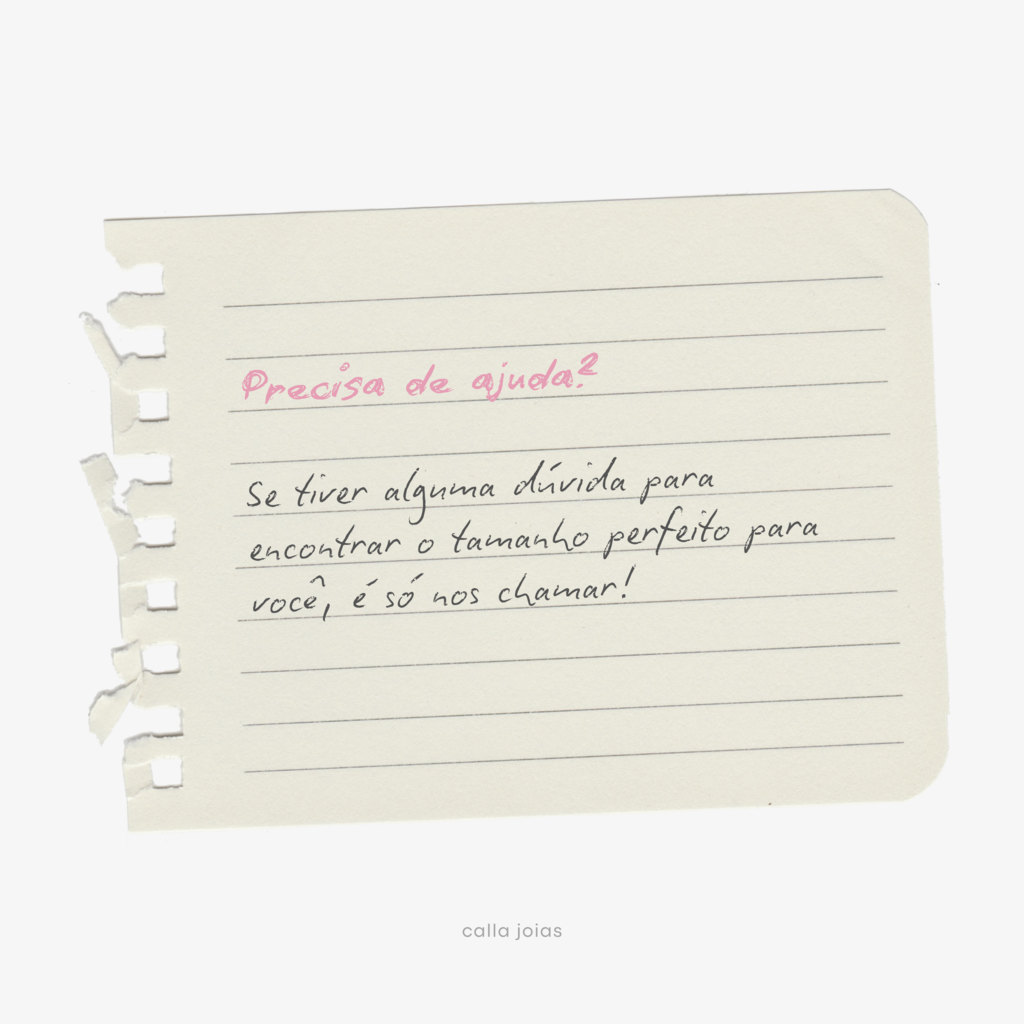 Precisa de ajuda?
Se tiver alguma dúvida para
encontrar o tamanho perfeito para
você, é só nos chamar!
calla joias